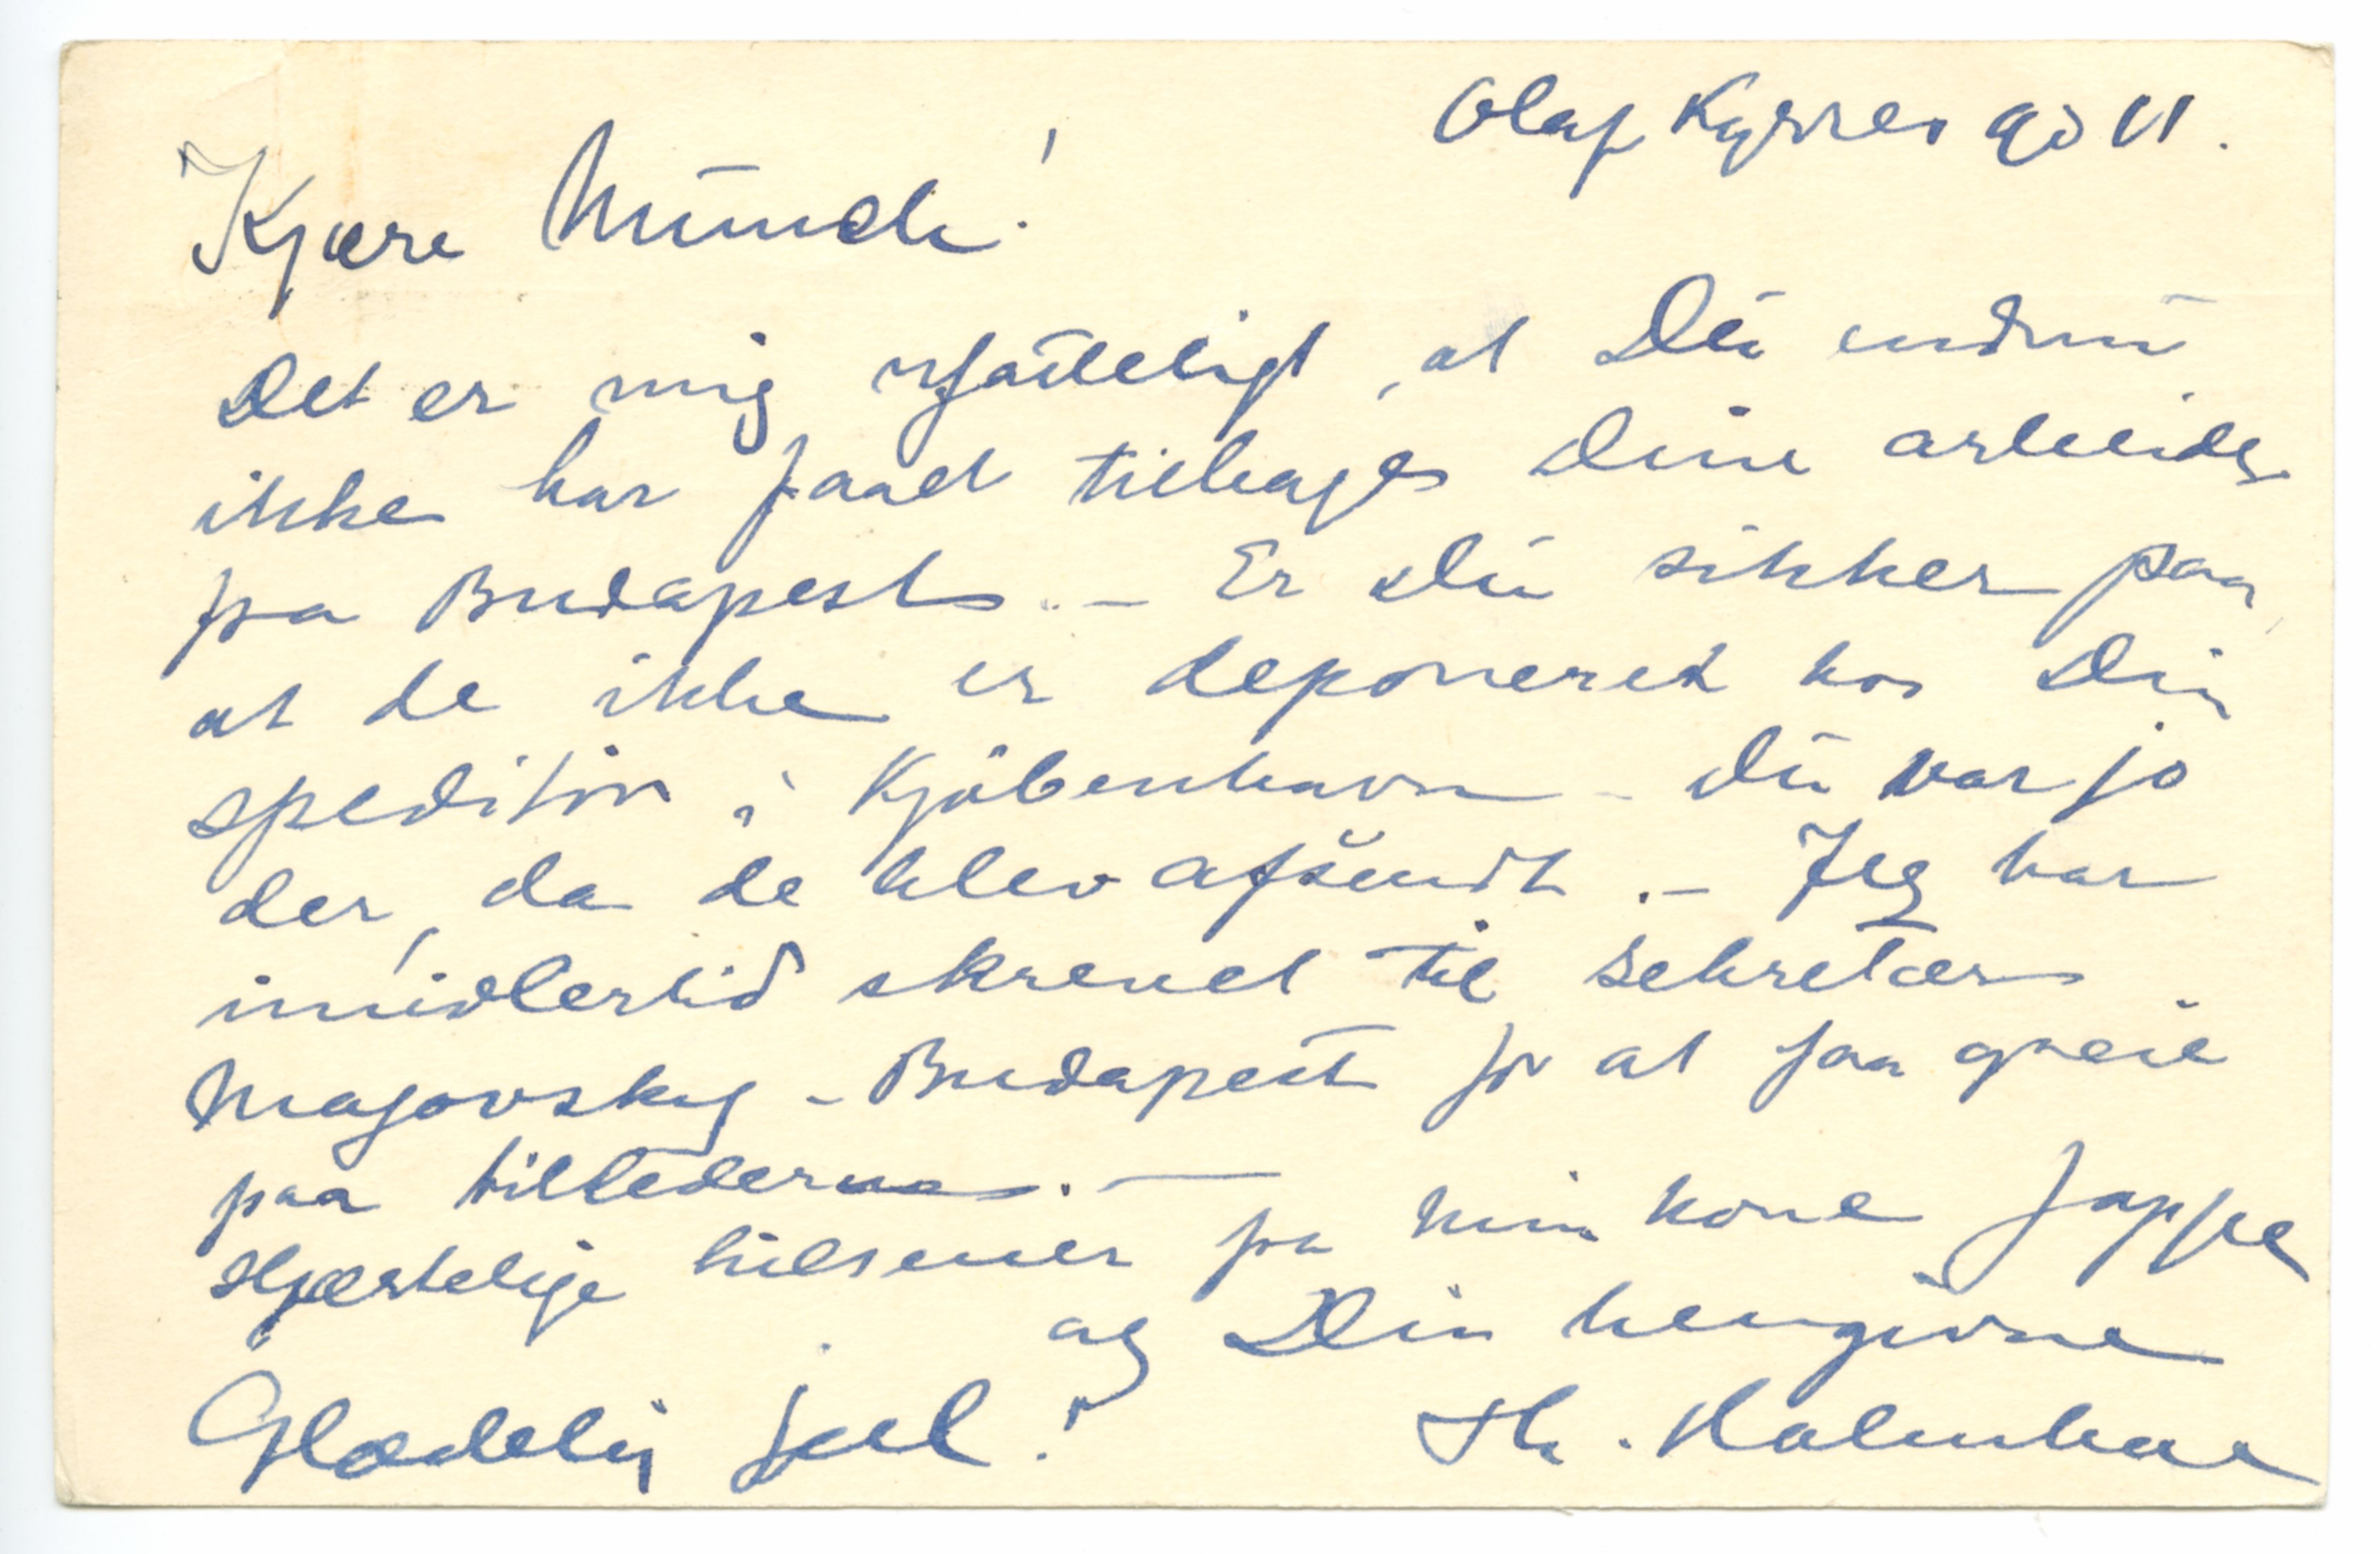 Olaf Kyrres gd 11.
Kjære Munch!
Det er mig ufatteligt, at Du endnu
ikke har faaet tilbage Dine arbeider
fra Budapest. – Er Du sikker paa,
at de ikke er deponeret hos Din
speditör i Kjöbenhavn – Du var jo
der, da de blev afsendt. – Jeg har
imidlertid skrevet til sekretær
Majovsky – Budapest for at faa greie
paa billederne. —
Hjærtelige hilsener fra min kone Jappe
og Din hengivne
Glædelig jul! Th. Holmboe